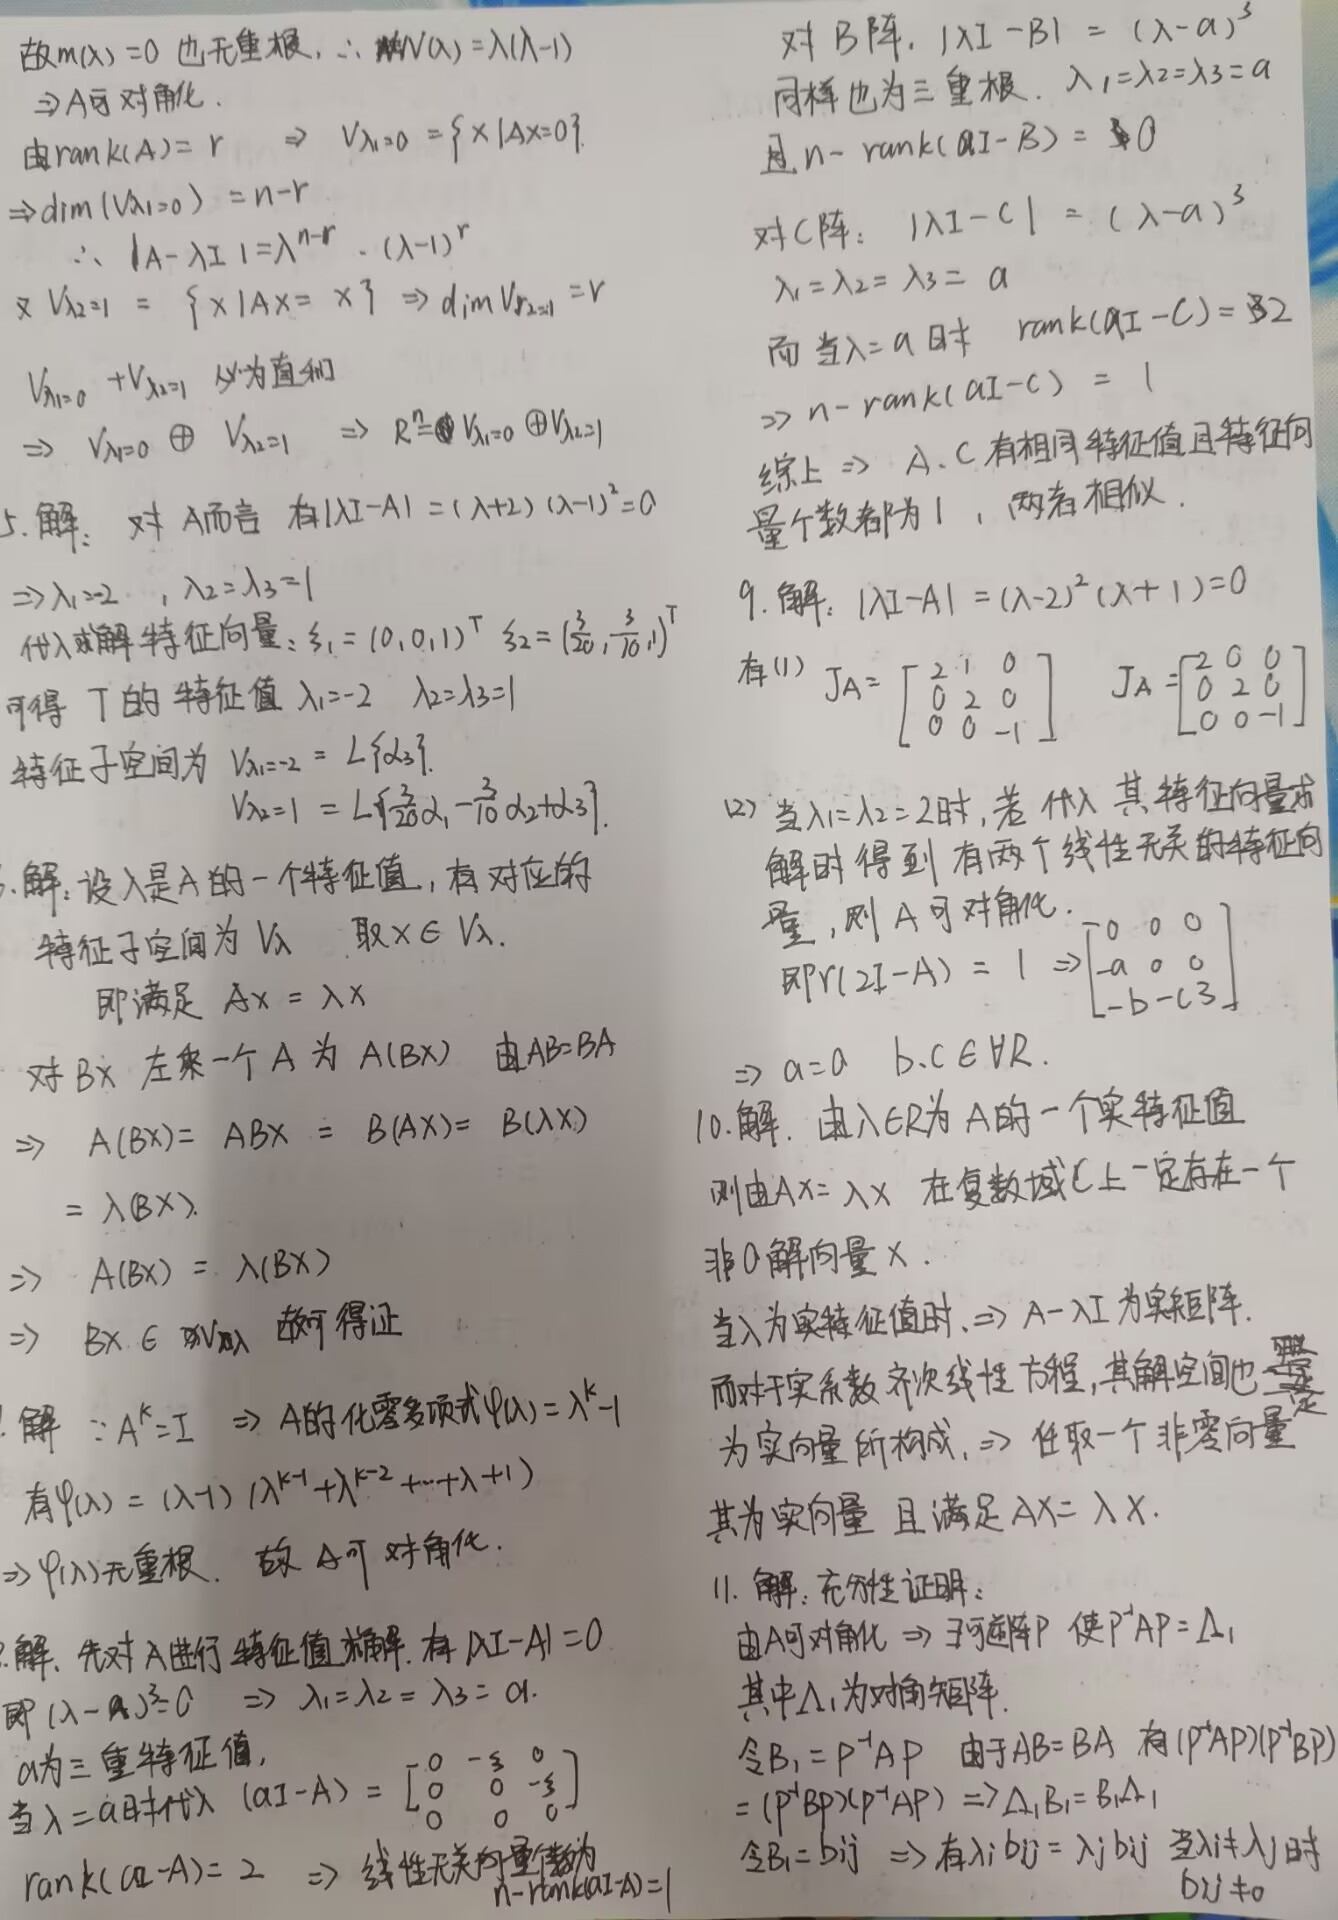 故m(λ)=0 也无重根, ∴ N(λ)=λ(λ-1)
⇒A可对角化.
由rank(A)=r ⇒ Vλ₁=0 = {x|Ax=0}.
⇒dim(Vλ₁=0) = n-r
∴ |A-λI|=λⁿ⁻ʳ · (λ-1)ʳ
又 Vλ₂=1 = {x|Ax= x} ⇒ dim Vr₂=1 = r
Vλ₁=0 + Vλ₂=1 必为直和
⇒ Vλ₁=0 ⊕ Vλ₂=1 ⇒ Rⁿ= Vλ₁=0 ⊕ Vλ₂=1
5. 解: 对 A而言 有|λI-A| = (λ+2) (λ-1)² = 0
⇒λ₁=-2 , λ₂=λ₃=1
代入求解特征向量: ξ₁ = (0,0,1)ᵀ ξ₂ = (3/20, -3/10, 1)ᵀ
可得 T的特征值 λ₁=-2 λ₂=λ₃=1
特征子空间为 Vλ₁=-2 = L{α₃}.
Vλ₂=1 = L{3/20 α₁ - 3/10 α₂+α₃}.
解: 设λ是A的一个特征值, 有对应的
特征子空间为 Vλ 取x∈ Vλ.
即满足 Ax = λx
对Bx 左乘一个A 为 A(Bx) 由AB=BA
⇒ A(Bx)= ABx = B(Ax)= B(λx)
= λ(Bx).
⇒ A(Bx) = λ(Bx)
⇒ Bx ∈ Vλ 故可得证
解 ∵ Aᵏ=I ⇒ A的化零多项式φ(λ)=λᵏ-1
有φ(λ) = (λ-1) (λᵏ⁻¹+λᵏ⁻²+…+λ+1)
⇒ φ(λ)无重根. 故 A可对角化.
解. 先对A进行特征值求解. 有|λI-A|=0
即 (λ-a)³=0 ⇒ λ₁=λ₂=λ₃=a.
a为三重特征值,
当λ=a时代入 (aI-A) = [0 -ξ 0
0 0 -ξ
0 0 0]
rank(aI-A)= 2 ⇒ 线性无关向量个数为
n-rank(aI-A)=1
对B阵. |λI-B| = (λ-a)³
同样也为三重根. λ₁=λ₂=λ₃=a
且 n-rank(aI-B) = 0
对C阵: |λI-C| = (λ-a)³
λ₁=λ₂=λ₃= a
而当λ=a时 rank(aI-C)= 2
⇒ n-rank(aI-C) = 1
综上 ⇒ A.C有相同特征值且特征向
量个数都为1 , 两者相似.
9. 解: |λI-A| = (λ-2)²(λ+1)=0
有(1) J_A= [2 1 0 J_A = [2 0 0
0 2 0 0 2 0
0 0 -1] 0 0 -1]
(2) 当λ₁=λ₂=2时, 若代入其特征向量求
解时得到有两个线性无关的特征向
量, 则A可对角化.
即r(2I-A) = 1 ⇒ [0 0 0
-a 0 0
-b -c 3]
⇒ a=0 b.c∈∀R.
10.解. 由λ∈R为A的一个实特征值
则由Ax=λx 在复数域C上一定存在一个
非0解向量x.
当λ为实特征值时. ⇒ A-λI 为实矩阵.
而对于实系数齐次线性方程, 其解空间也一定
为实向量所构成. ⇒ 任取一个非零向量
其为实向量 且满足AX=λX.
11. 解: 充分性证明:
由A可对角化 ⇒ ∃可逆阵P 使P⁻¹AP=Λ₁
其中Λ₁为对角矩阵.
令B₁=P⁻¹AP 由于AB=BA 有(P⁻¹AP)(P⁻¹BP)
= (P⁻¹BP)(P⁻¹AP) ⇒ Λ₁B₁=B₁Λ₁
令B₁=bij ⇒ 有λi bij = λj bij 当λi≠λj时
bij≠0